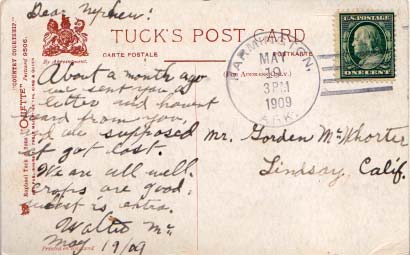 Dear Nephew:
TUCK'S POST CARD
By Appointment.
CARTE POSTALE
POSTKARTE
(For Address Only.)
MAY
19
3PM
1909
ARK.
U.S. POSTAGE
ONE CENT
About a month ago
we sent you a
letter and havent
heard from you,
and we supposed
it got lost.
We are all well.
crops are good;
is extra.
Walter Mc.
May 19/09
Mr. Gorden McWhorter
Lindsay, Calif.
"COUNTRY COURTSHIP"
Postcard 9506.
Raphael Tuck & Sons' "OILETTE"
Printed in England